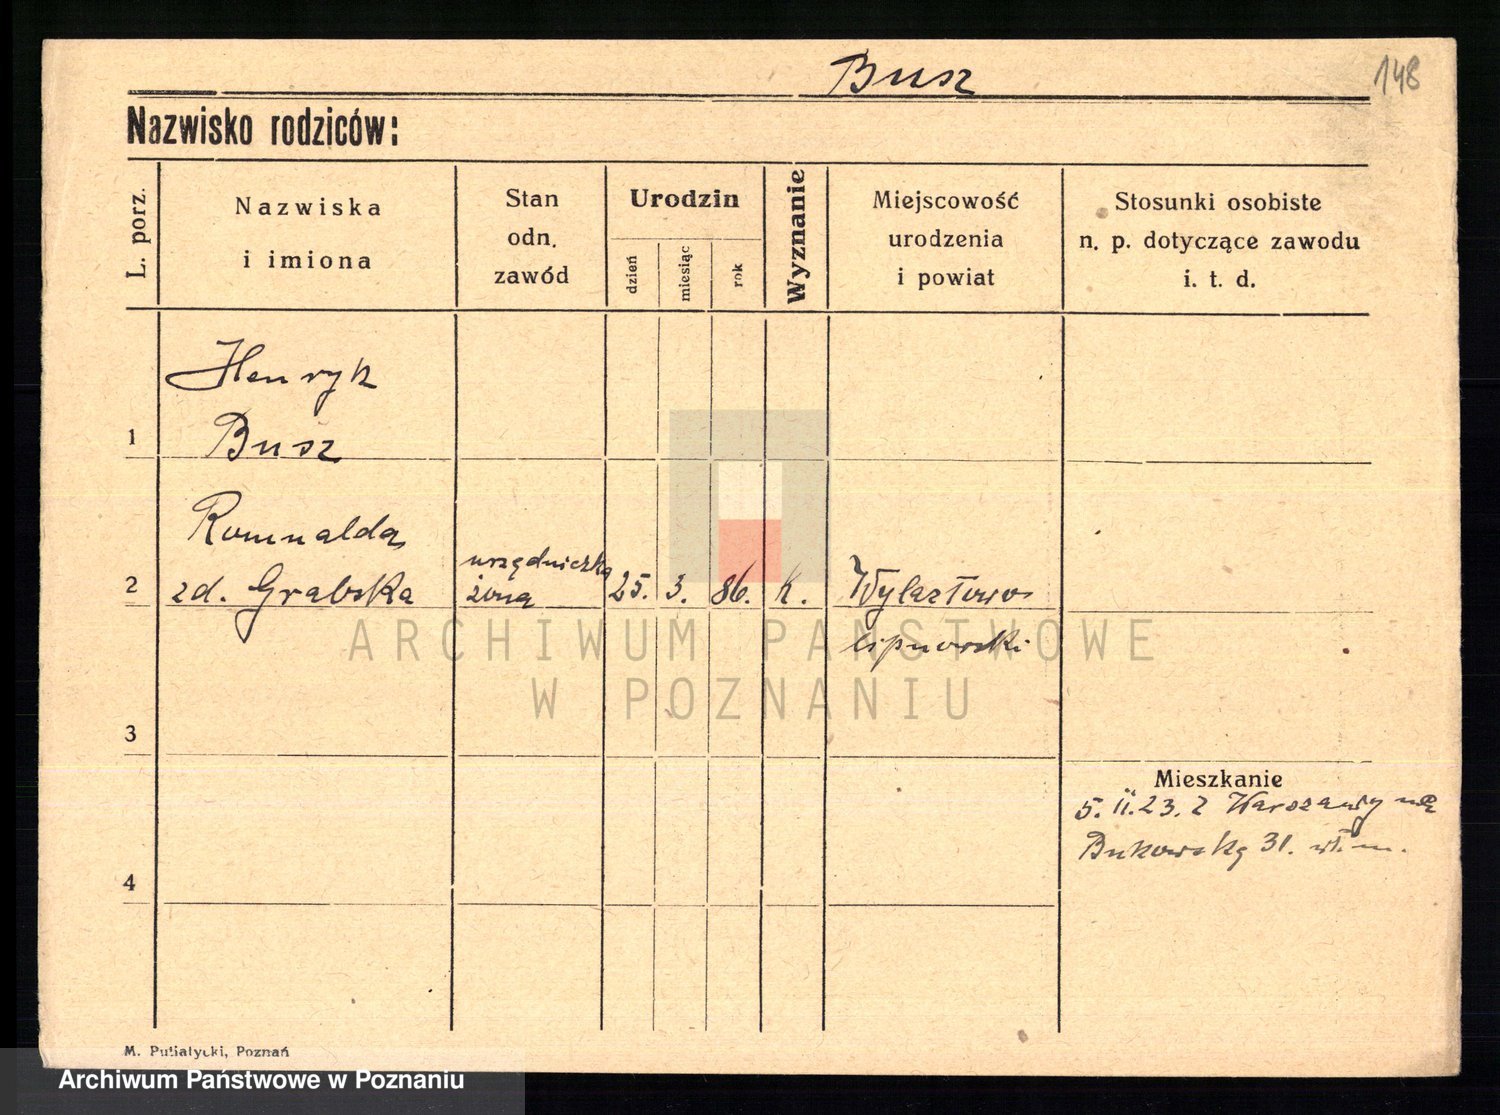 Busz
148
Nazwisko rodziców:
L. porz.
Nazwiska
i imiona
Stan
odn.
zawód
Urodzin
dzień
miesiąc
rok
Wyznanie
Miejscowość
urodzenia
i powiat
Stosunki osobiste
n. p. dotyczące zawodu
i. t. d.
Henryk
1 Busz
Romualda
2 zd. Grabska
urzędniczka
żona
25. 3. 86. k.
Wylazłowo
lipnowski
ARCHIWUM PAŃSTWOWE
W POZNANIU
3
Mieszkanie
5. II. 23. z Warszawy na
Bukowską 31. wł. m.
4
M. Putiatycki, Poznań
Archiwum Państwowe w Poznaniu